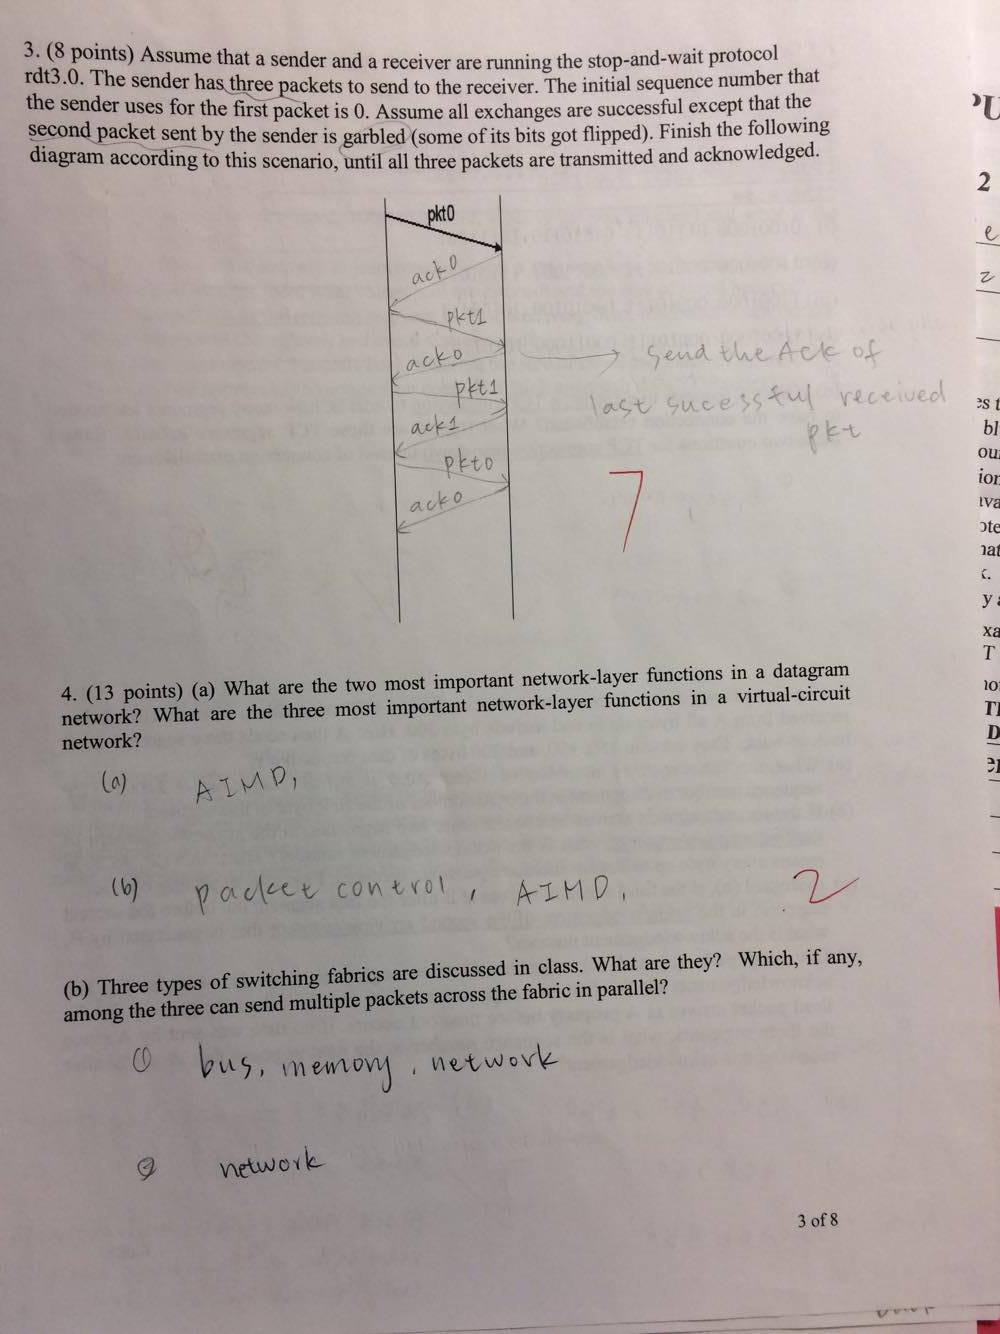 3. (8 points) Assume that a sender and a receiver are running the stop-and-wait protocol
rdt3.0. The sender has three packets to send to the receiver. The initial sequence number that
the sender uses for the first packet is 0. Assume all exchanges are successful except that the
second packet sent by the sender is garbled (some of its bits got flipped). Finish the following
diagram according to this scenario, until all three packets are transmitted and acknowledged.
pkt0
ack0
pkt1
ack0
pkt1
ack1
pkt0
ack0
send the Ack of
last sucessful received
pkt
7
4. (13 points) (a) What are the two most important network-layer functions in a datagram
network? What are the three most important network-layer functions in a virtual-circuit
network?
(a) AIMD,
(b) packet control, AIMD.
2
(b) Three types of switching fabrics are discussed in class. What are they? Which, if any,
among the three can send multiple packets across the fabric in parallel?
① bus, memory, network
② network
3 of 8
2
e
z
es t
bl
our
ion
D